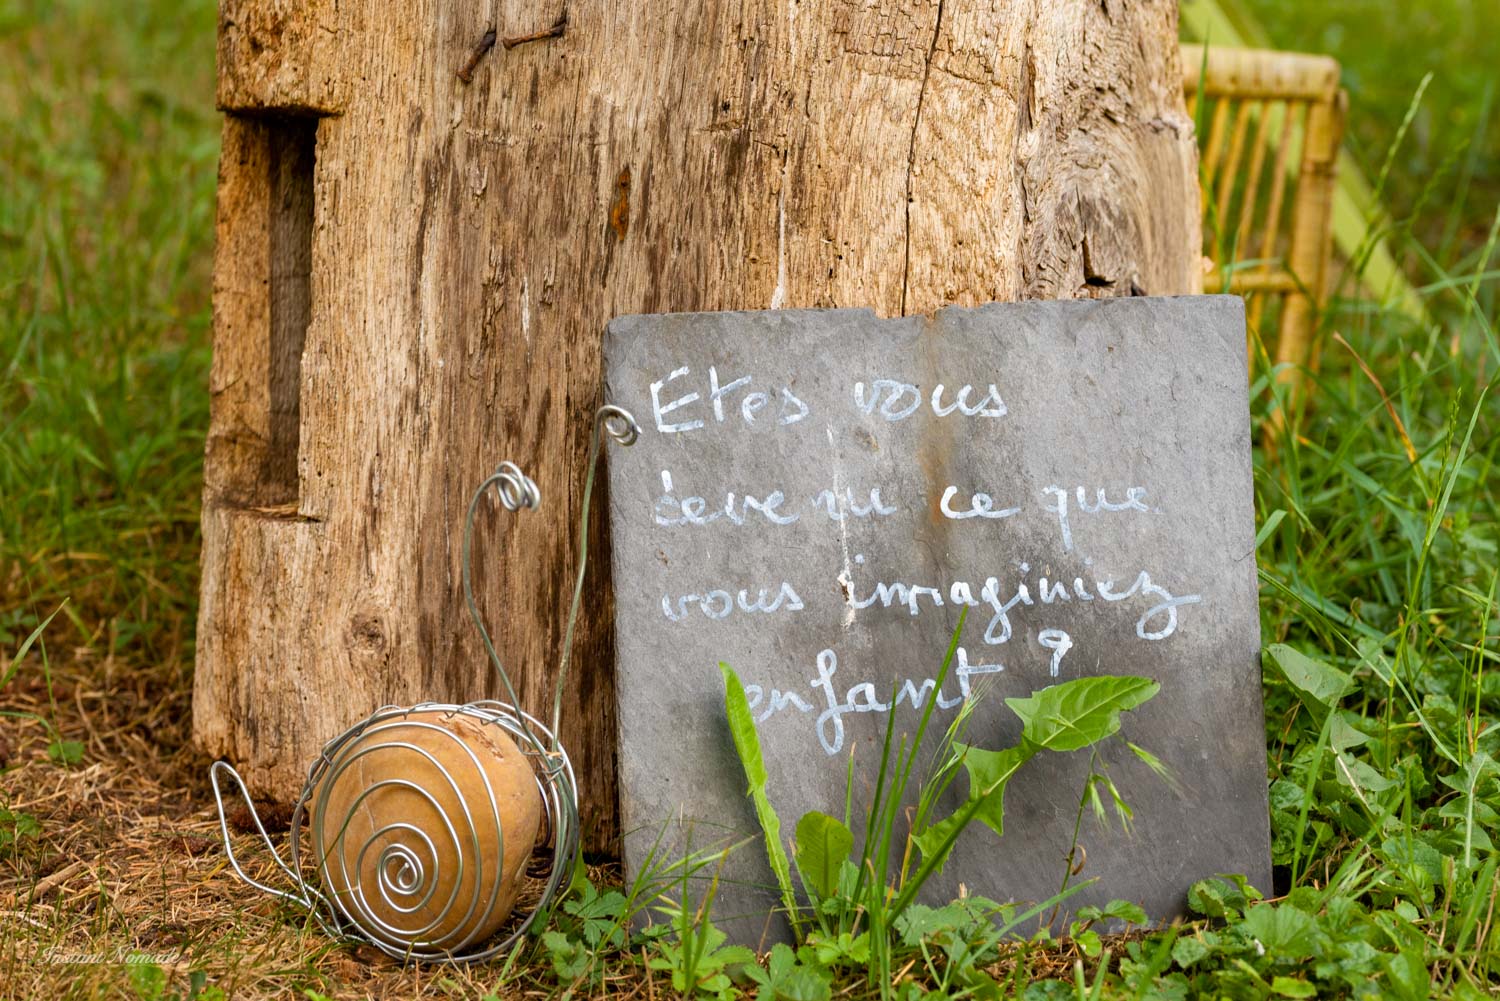 Etes vous
devenu ce que
vous imaginiez
enfant ?
Instant Nomade